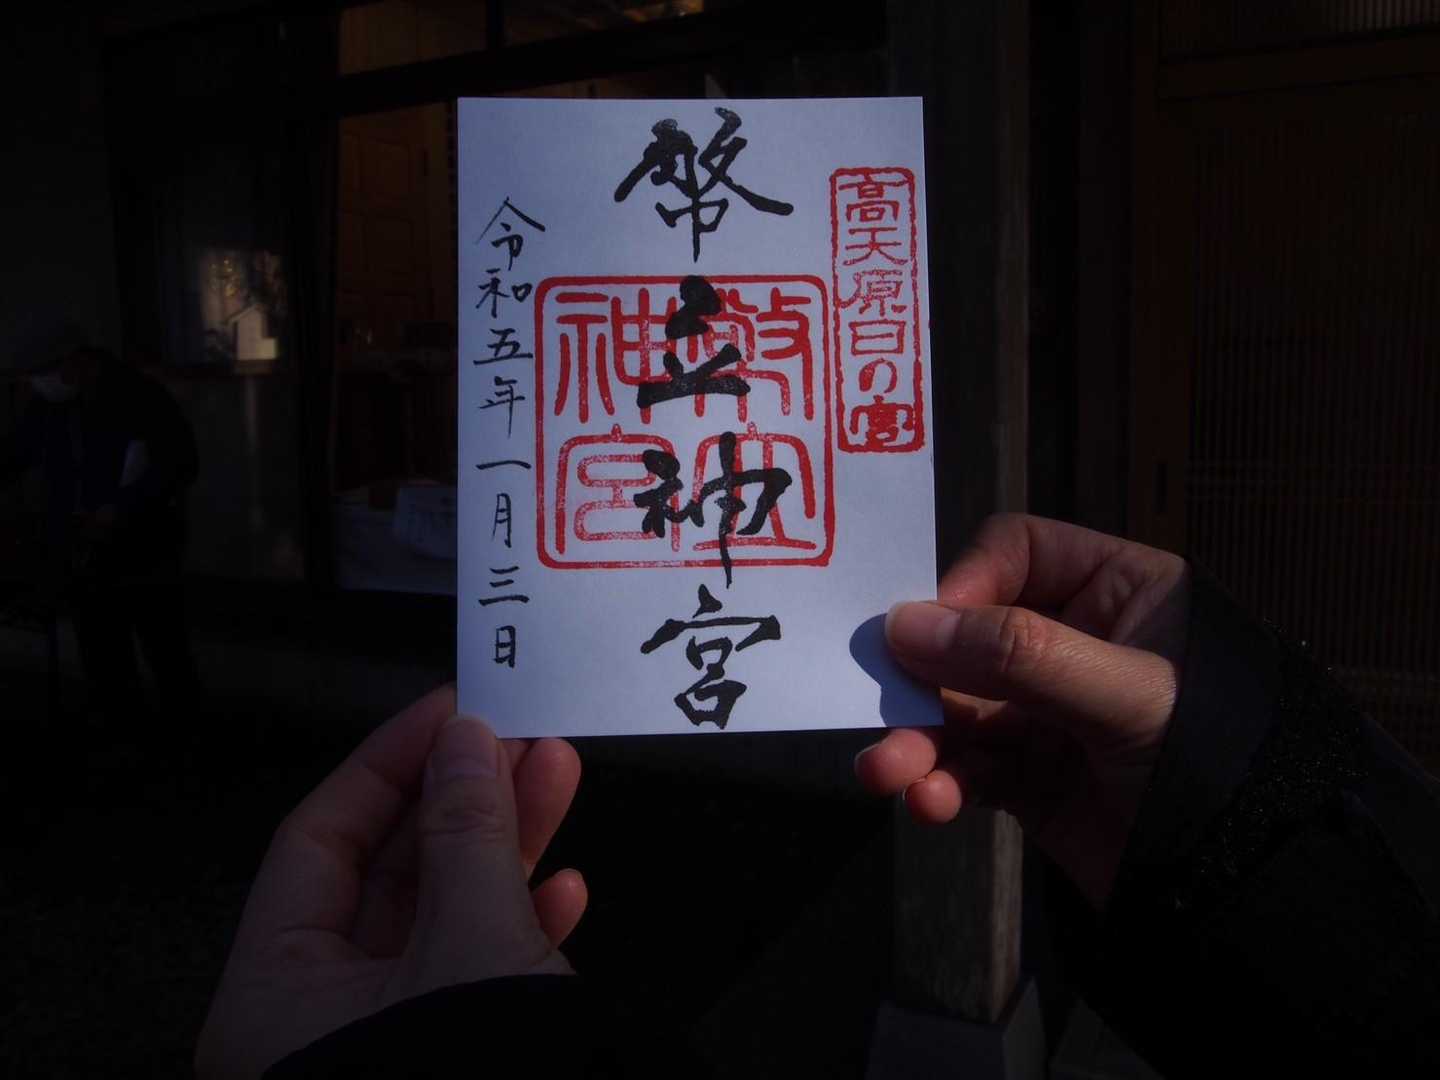 高天原日の宮
幣立神宮
幣立神宮
令和五年一月三日